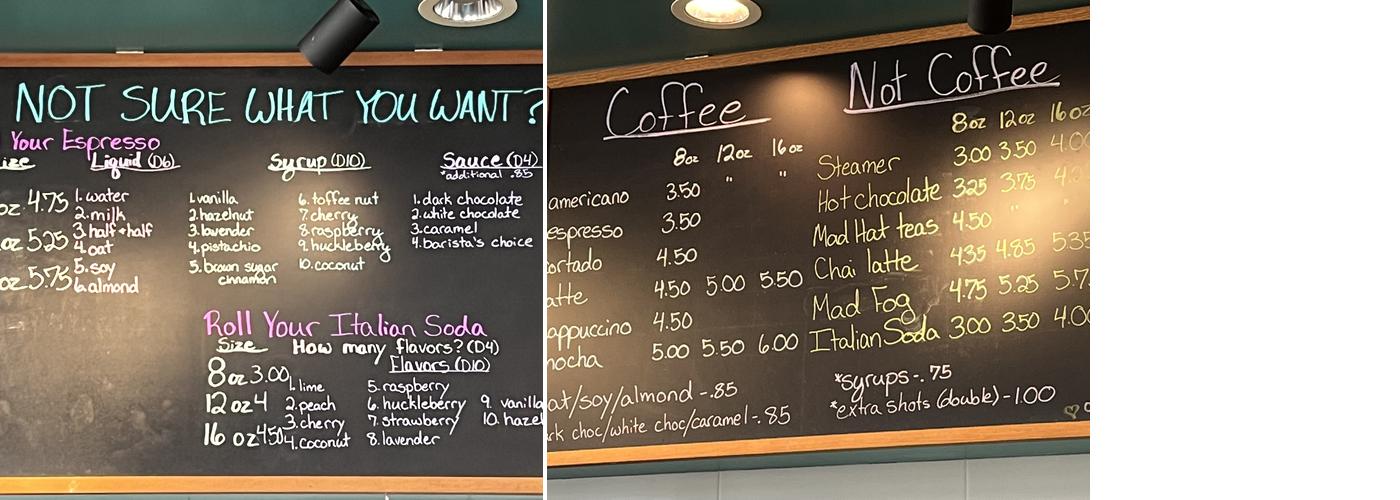 NOT SURE WHAT YOU WANT?
Your Espresso
Liquid (D6) Syrup (D10) Sauce (D4)
*additional .85
oz 4.75
oz 5.25
oz 5.75
1. water
2. milk
3. half + half
4. oat
5. soy
6. almond
1. vanilla
2. hazelnut
3. lavender
4. pistachio
5. brown sugar
cinnamon
6. toffee nut
7. cherry
8. raspberry
9. huckleberry
10. coconut
1. dark chocolate
2. white chocolate
3. caramel
4. barista's choice
Roll Your Italian Soda
Size How many flavors? (D4)
Flavors (D10)
8oz 3.00
12 oz 4
16 oz 4.50
1. lime
2. peach
3. cherry
4. coconut
5. raspberry
6. huckleberry
7. strawberry
8. lavender
9. vanilla
10. hazel
Coffee
8oz 12oz 16oz
americano 3.50 " "
espresso 3.50
ortado 4.50
atte 4.50 5.00 5.50
appuccino 4.50
mocha 5.00 5.50 6.00
oat/soy/almond - .85
rk choc/white choc/caramel - .85
Not Coffee
8oz 12oz 16oz
Steamer 3.00 3.50 4.00
Hot chocolate 3.25 3.75
Mad Hat teas 4.50 " "
Chai latte 4.35 4.85 5.35
Mad Fog 4.75 5.25 5.7
Italian Soda 3.00 3.50 4.00
*syrups - .75
*extra shots (double) - 1.00